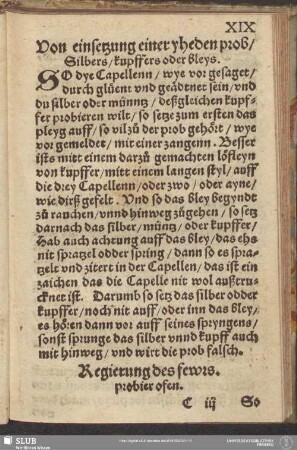 XIX
Von einsetzung einer yheden prob/
Silbers/kupffers oder bleys.
SO dye Capellenn/wye vor gesaget/
durch glüent vnd geädtnet sein/vnd
du silber oder müntz/deßgleichen kupf-
fer probieren wilt/so setze zum ersten das
pleyg auff/so vil zů der prob gehört/wye
vor gemeldet/mit einer zangenn. Besser
ists mitt einem darzů gemachten löffleyn
von kupffer/mitt einem langen styl/auff
die drey Capellenn/oder zwo/oder ayne/
wie dirß gefelt. Vnd so das bley begyndt
zů rauchen/vnnd hinweg zůgehen/so setz
darnach das silber/müntz/oder kupffer/
Hab auch achtung auff das bley/das ehs
nit spratzel odder spring/dann so es spra-
tzelt vnd zitert in der Capellen/das ist ein
zaichen das die Capelle nit wol außtru-
cknet ist. Darumb so setz das silber odder
kupffer/noch nit auff/oder inn das bley/
es hören dann vor auff seines spryngens/
sonst sprunge das silber vnnd kupff auch
mit hinweg/vnd wirt die prob falsch.
Regierung des fewrs.
probier ofen.
C iij So
SLUB
Wir führen Wissen.
UNIVERSITÄTSBIBLIOTHEK
FREIBERG